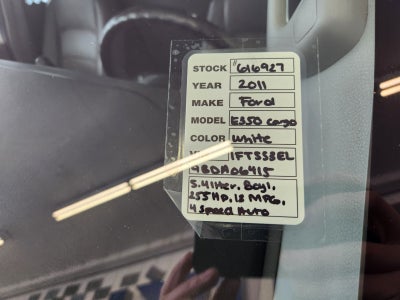 STOCK "616927
YEAR 2011
MAKE Ford
MODEL E350 cargo
COLOR White
1FTSS3EL
4BDA06415
5.4 liter, 8cyl,
255 HP, 13 MPG,
4 Speed Auto